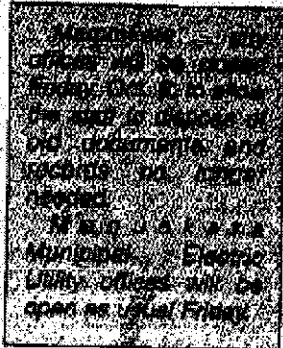 offices will be closed
Friday, Oct. to allow
the staff to dispose of
old documents and
records no longer
needed.
Municipal Electric
Utility offices will be
open as usual Friday.